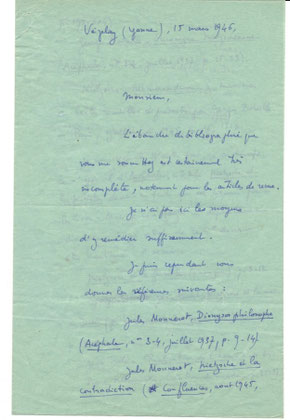 Vézelay (Yonne), 15 mars 1946,
Monsieur,
L'ébauche de bibliographie que
vous me soumettez est certainement très
incomplète, notamment pour les articles de revue.
Je n'ai pas ici les moyens
d'y remédier suffisamment.
Je puis cependant vous
donner les références suivantes :
Jules Monnerot, Dionysos philosophe
(Acéphale, n° 3-4, juillet 1937, p. 9-14)
Jules Monnerot, Nietzsche et la
contradiction (Confluences, août 1945,